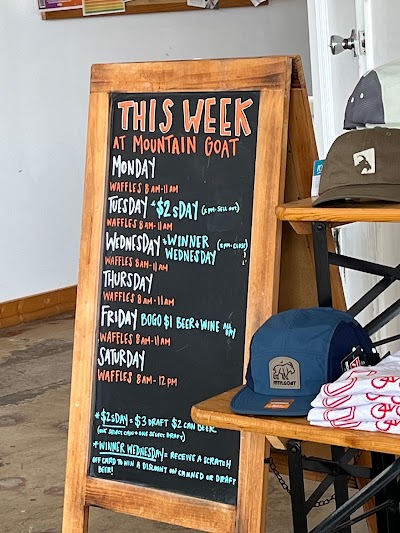 THIS WEEK
AT MOUNTAIN GOAT
MONDAY
WAFFLES 8AM-11AM
TUESDAY *$2SDAY (2PM-SELL OUT)
WAFFLES 8AM-11AM
WEDNESDAY *WINNER WEDNESDAY (2PM-CLOSE)
WAFFLES 8AM-11AM
THURSDAY
WAFFLES 8AM-11AM
FRIDAY BOGO $1 BEER+WINE ALL DAY
WAFFLES 8AM-11AM
SATURDAY
WAFFLES 8AM-12PM
*$2SDAY = $3 DRAFT $2 CAN BEER
(ONE SELECT CAN + ONE SELECT DRAFT)
*WINNER WEDNESDAY= RECEIVE A SCRATCH
OFF CARD TO WIN A DISCOUNT ON CANNED OR DRAFT
BEER!